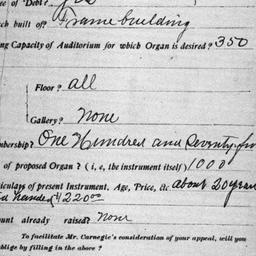 of Debt? Yes
ch built of? Frame building
ng Capacity of Auditorium for which Organ is desired? 350
Floor? all
Gallery? None
mbership? One Hundred and Seventy fiv
of proposed Organ? (i, e, the instrument itself) 1000
iculars of present Instrument, Age, Price, &c. about 20 years
handed $220.00
ount already raised? None
To facilitate Mr. Carnegie's consideration of your appeal, will you
blige by filling in the above?